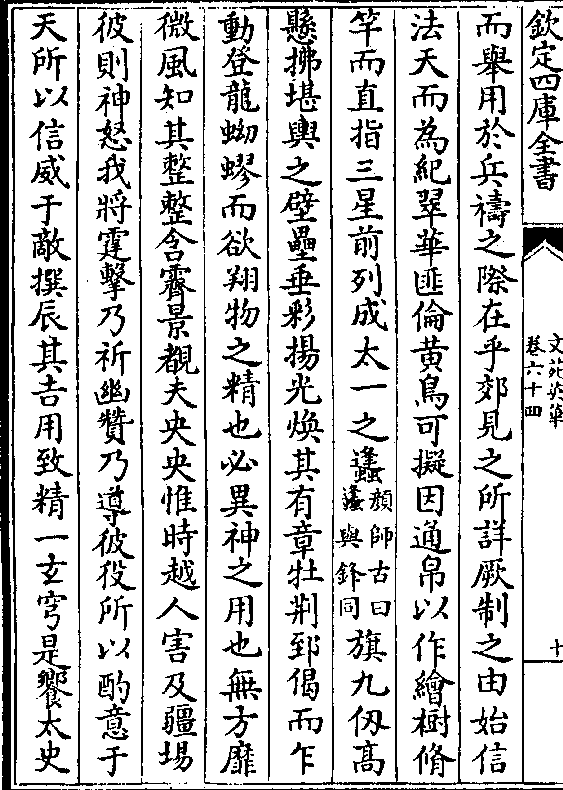 欽定四庫全書
文苑英華
卷六十四
十
而舉用於兵禱之際在乎郊見之所詳厥制之由始信
法天而為紀翠華匪倫黄鳥可擬因通帛以作繪樹脩
竿而直指三星前列成太一之䘈顔師古曰䘈與鋒同旗九仭髙
懸拂堪輿之壁壘垂彩揚光煥其有章牡荆郅偈而乍
動登龍蚴蟉而欲翔物之精也必異神之用也無方靡
微風知其整整含霽景覩夫央央惟時越人害及疆埸
彼則神怒我將霆擊乃祈幽贊乃導彼役所以酌意于
天所以信威于敵撰辰其吉用致精一𤣥穹是饗太史